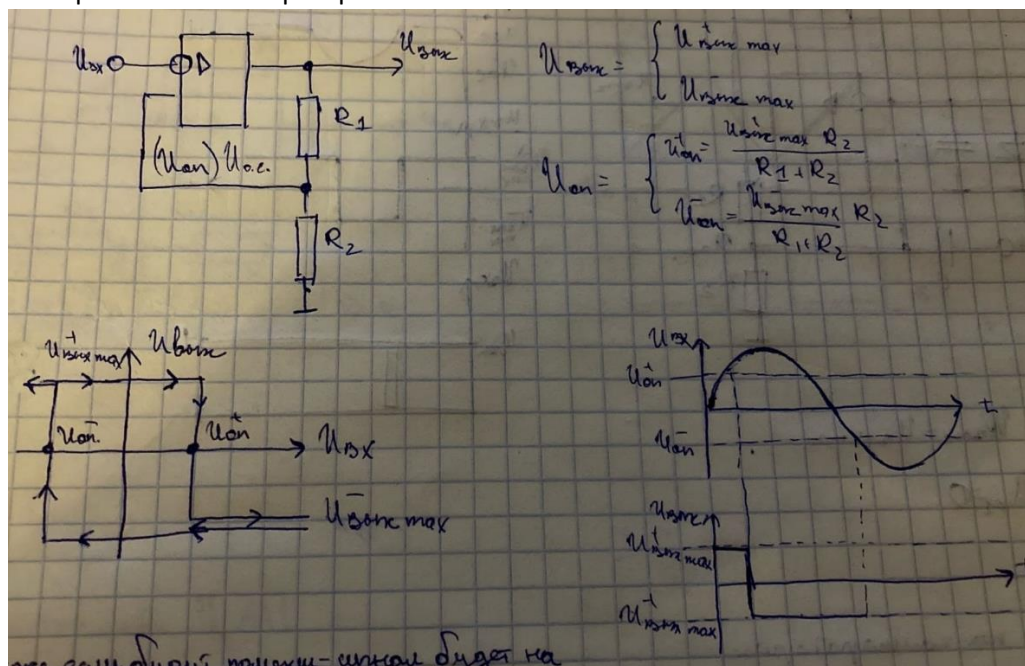 Uвх
Uвых
R1
(Uоп) Uо.с.
R2
Uвых = { U⁺вых max
U⁻вых max
Uоп = { U⁺оп = U⁺вых max R2 / R1 + R2
U⁻оп = U⁻вых max R2 / R1 + R2
U⁺вых max
Uвых
U⁻оп
U⁺оп
Uвх
U⁻вых max
Uвх
U⁺оп
t
U⁻оп
Uвых
U⁺вых max
U⁺вых max
будет помехи - сигнал будет на